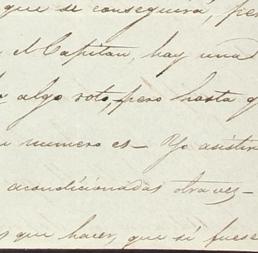 que se conseguirá, per
el Capitan, hay una
algo roto, pero hasta q
numero es - Yo asistir
acondicionadas otra vez -
que hacer, que si fuese